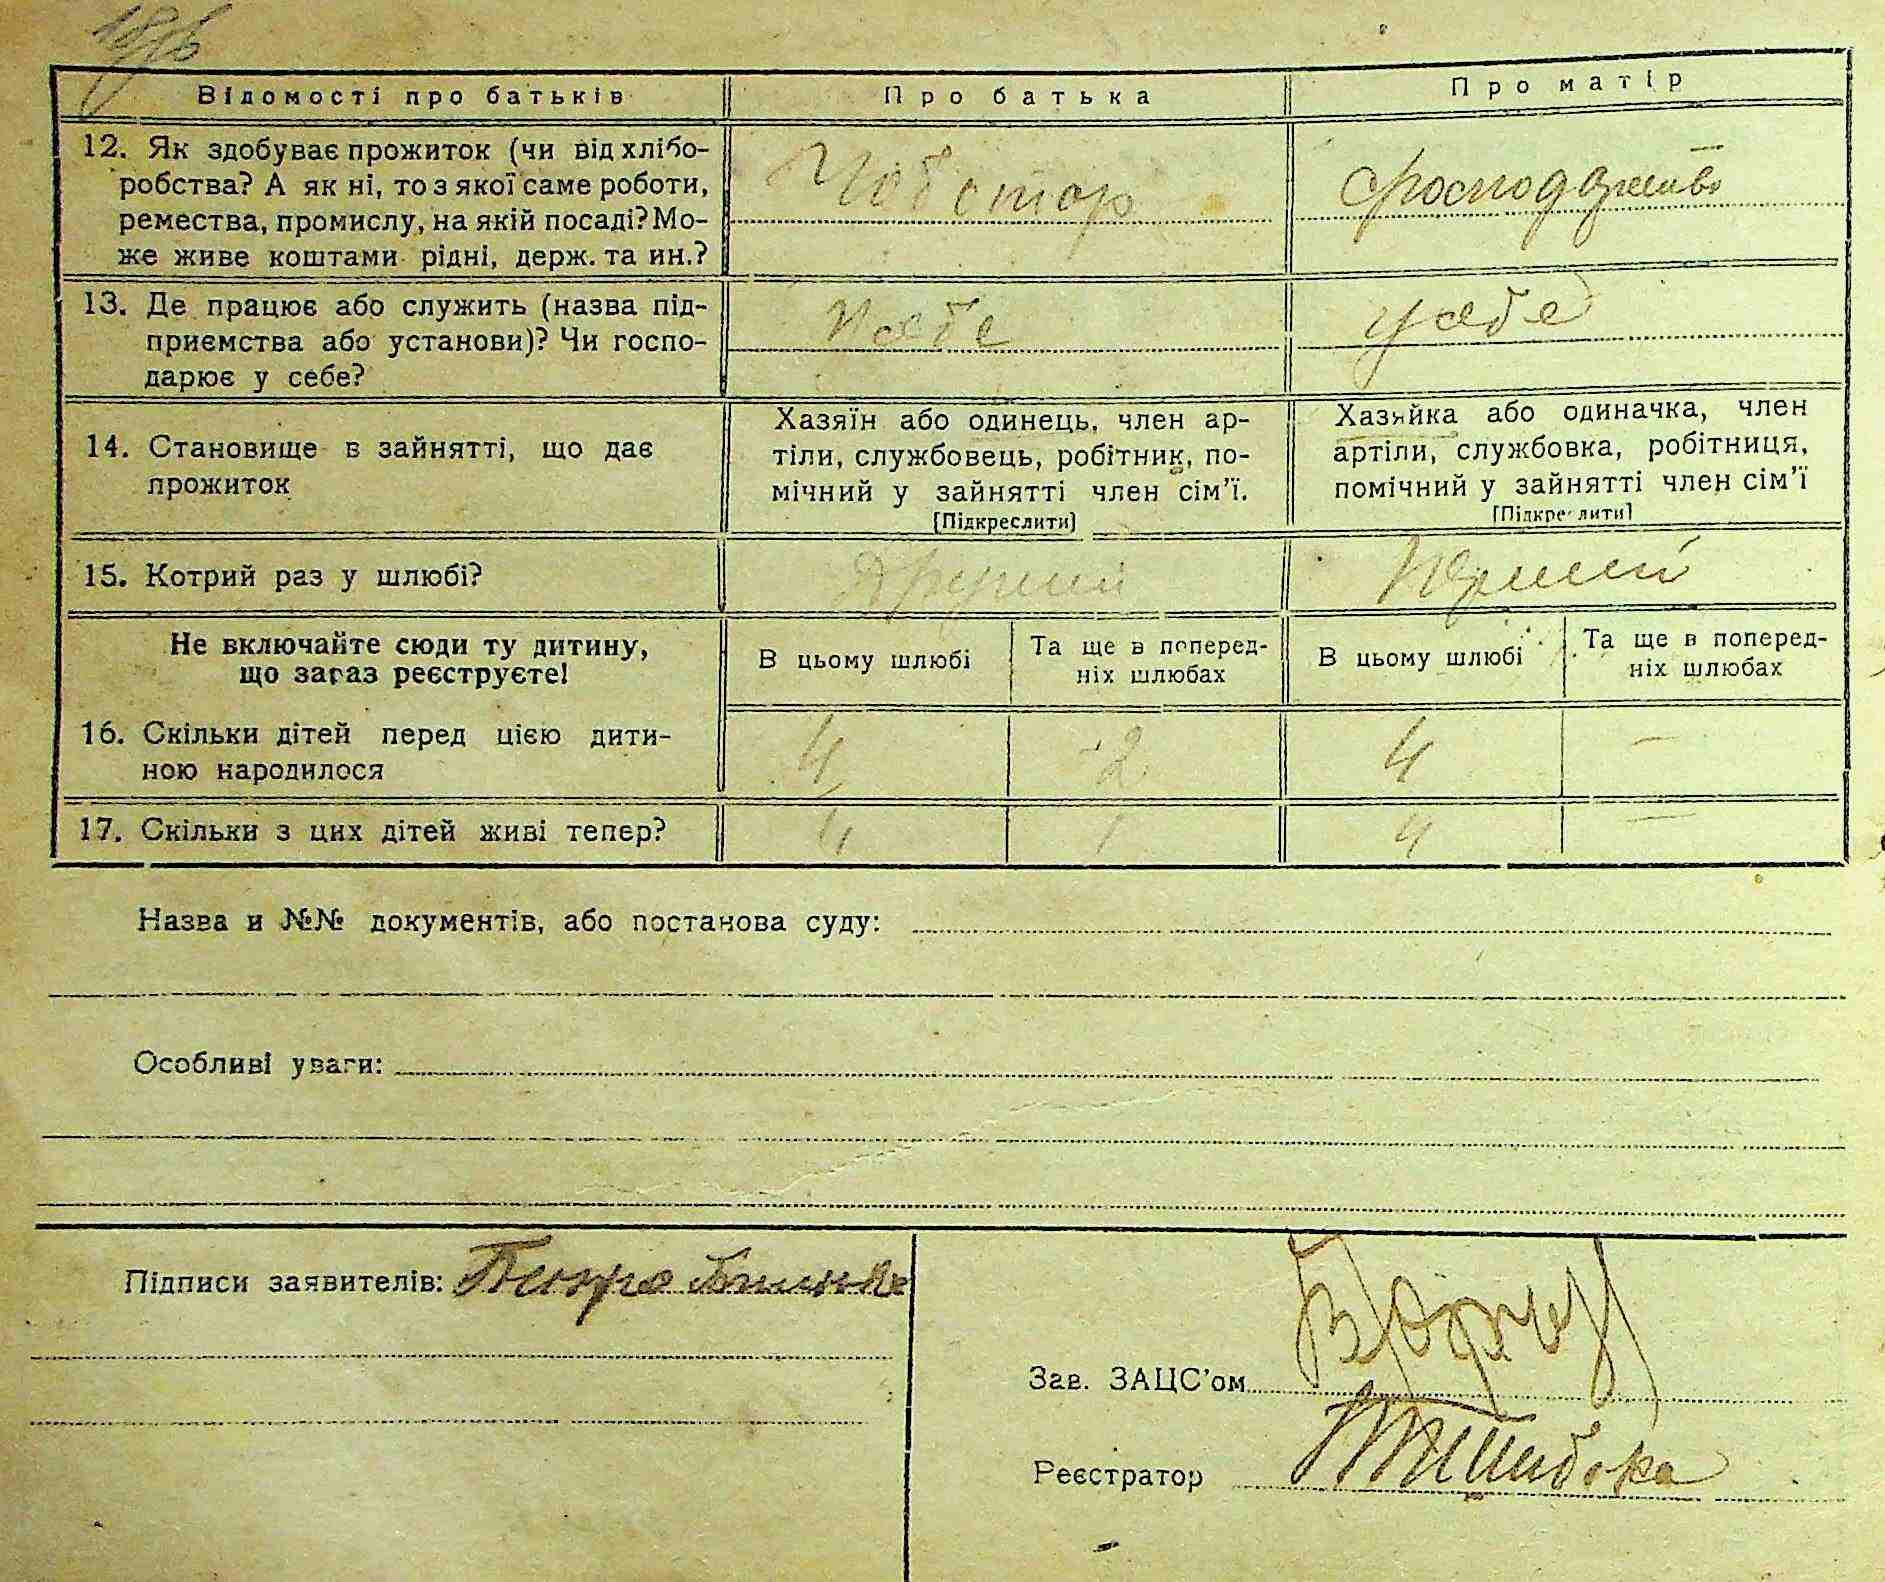 Відомості про батьків Про батька Про матір
12. Як здобуває прожиток (чи від хлібо-
робства? А як ні, то з якої саме роботи,
ремества, промислу, на якій посаді? Мо-
же живе коштами рідні, держ. та ин.?
13. Де працює або служить (назва під-
приємства або установи)? Чи госпо-
дарює у себе?
у себе
14. Становище в зайнятті, що дає
прожиток
Хазяїн або одинець, член ар-
тіли, службовець, робітник, по-
мічний у зайнятті член сім'ї.
[Підкреслити]
Хазяйка або одиначка, член
артіли, службовка, робітниця,
помічний у зайнятті член сім'ї
[Підкреслити]
15. Котрий раз у шлюбі? Другий
Не включайте сюди ту дитину,
що зараз реєструєте!
В цьому шлюбі
Та ще в поперед-
ніх шлюбах
В цьому шлюбі
Та ще в поперед-
ніх шлюбах
16. Скільки дітей перед цією дити-
ною народилося
4 2 4 —
17. Скільки з цих дітей живі тепер? 4 1 4 —
Назва и №№ документів, або постанова суду:
Особливі уваги:
Підписи заявителів: Петро
Зав. ЗАЦС'ом
Реєстратор